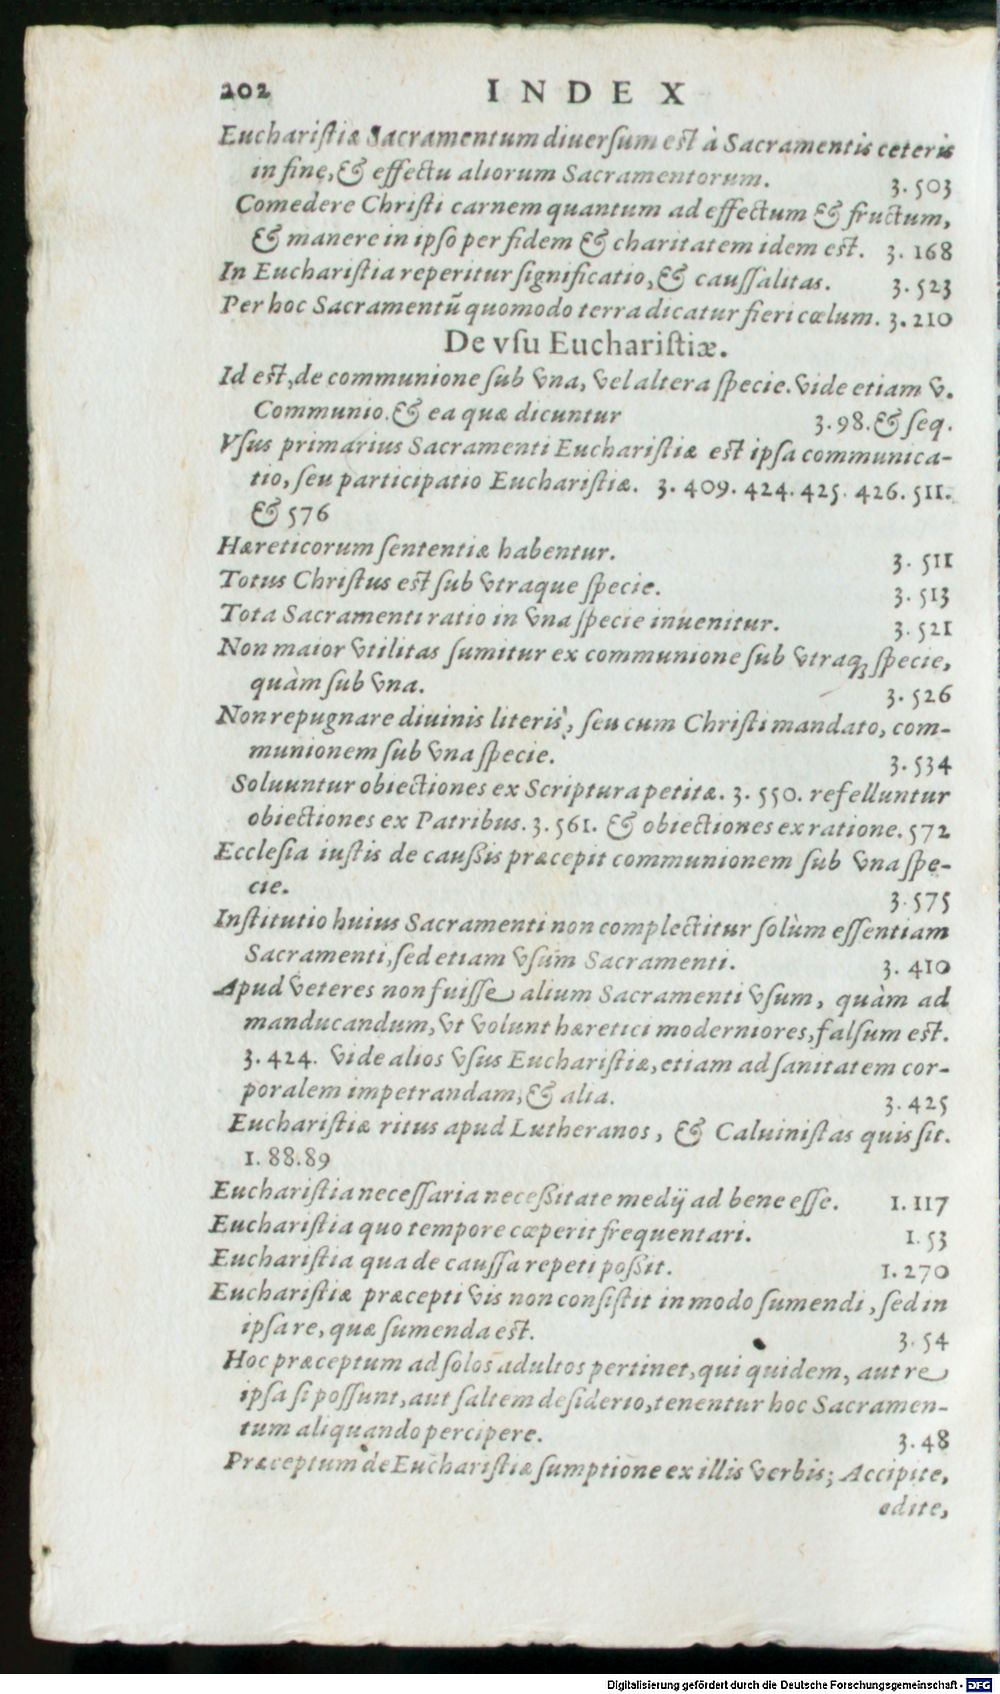 202 INDEX
Euchariſtiæ Sacramentum diuerſum eſt à Sacramentis ceteris
in fine, & effectu aliorum Sacramentorum. 3. 503
Comedere Chriſti carnem quantum ad effectum & fructum,
& manere in ipſo per fidem & charitatem idem eſt. 3. 168
In Euchariſtia reperitur ſignificatio, & cauſſalitas. 3. 523
Per hoc Sacramentũ quomodo terra dicatur fieri cœlum. 3. 210
De vſu Euchariſtiæ.
Id eſt, de communione ſub vna, vel altera ſpecie. vide etiam v.
Communio. & ea quæ dicuntur 3. 98. & ſeq.
Vſus primarius Sacramenti Euchariſtiæ eſt ipſa communica-
tio, ſeu participatio Euchariſtiæ. 3. 409. 424. 425. 426. 511.
& 576
Hæreticorum ſententiæ habentur. 3. 511
Totus Chriſtus eſt ſub vtraque ſpecie. 3. 513
Tota Sacramenti ratio in vna ſpecie inuenitur. 3. 521
Non maior vtilitas ſumitur ex communione ſub vtraq; ſpecie,
quàm ſub vna. 3. 526
Non repugnare diuinis literis, ſeu cum Chriſti mandato, com-
munionem ſub vna ſpecie. 3. 534
Soluuntur obiectiones ex Scriptura petitæ. 3. 550. refelluntur
obiectiones ex Patribus. 3. 561. & obiectiones ex ratione. 572
Eccleſia iuſtis de cauſsis præcepit communionem ſub vna ſpe-
cie. 3. 575
Inſtitutio huius Sacramenti non complectitur ſolùm eſſentiam
Sacramenti, ſed etiam vſum Sacramenti. 3. 410
Apud veteres non fuiſſe alium Sacramenti vſum, quàm ad
manducandum, vt volunt hæretici moderniores, falſum eſt.
3. 424. vide alios vſus Euchariſtiæ, etiam ad ſanitatem cor-
poralem impetrandam, & alia. 3. 425
Euchariſtiæ ritus apud Lutheranos, & Caluiniſtas quis ſit.
1. 88. 89
Euchariſtia neceſſaria neceſsitate medij ad bene eſſe. 1. 117
Euchariſtia quo tempore cœperit frequentari. 1. 53
Euchariſtia qua de cauſſa repeti poſsit. 1. 270
Euchariſtiæ præcepti vis non conſiſtit in modo ſumendi, ſed in
ipſa re, quæ ſumenda eſt. 3. 54
Hoc præceptum ad ſolos adultos pertinet, qui quidem, aut re
ipſa ſi poſſunt, aut ſaltem deſiderio, tenentur hoc Sacramen-
tum aliquando percipere. 3. 48
Præceptum de Euchariſtiæ ſumptione ex illis verbis; Accipite,
edite,
Digitalisierung gefördert durch die Deutsche Forschungsgemeinschaft - DFG